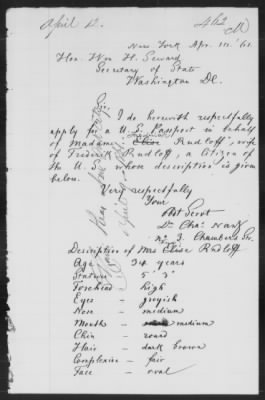 April 12.
462
New York Apr. 11. 61.
Hon. Wm H. Seward
Secretary of State
Washington DC.
Sir,
I do herewith respectfully
apply for a U.S. Passport in behalf
of Madame Elise Rudloff, wife
of Frederick Rudloff, a Citizen of
the U.S. whose description is given
below.
Very respectfully
Your
Obt Servt
Dr Chas
No 3. Chambers St.
Description of Mrs Elise Rudloff
Age 34 years
Stature 5' 3"
Forehead high
Eyes - greyish
Nose - medium
Mouth - medium
Chin - round
Hair - dark brown
Complexion - fair
Face - oval